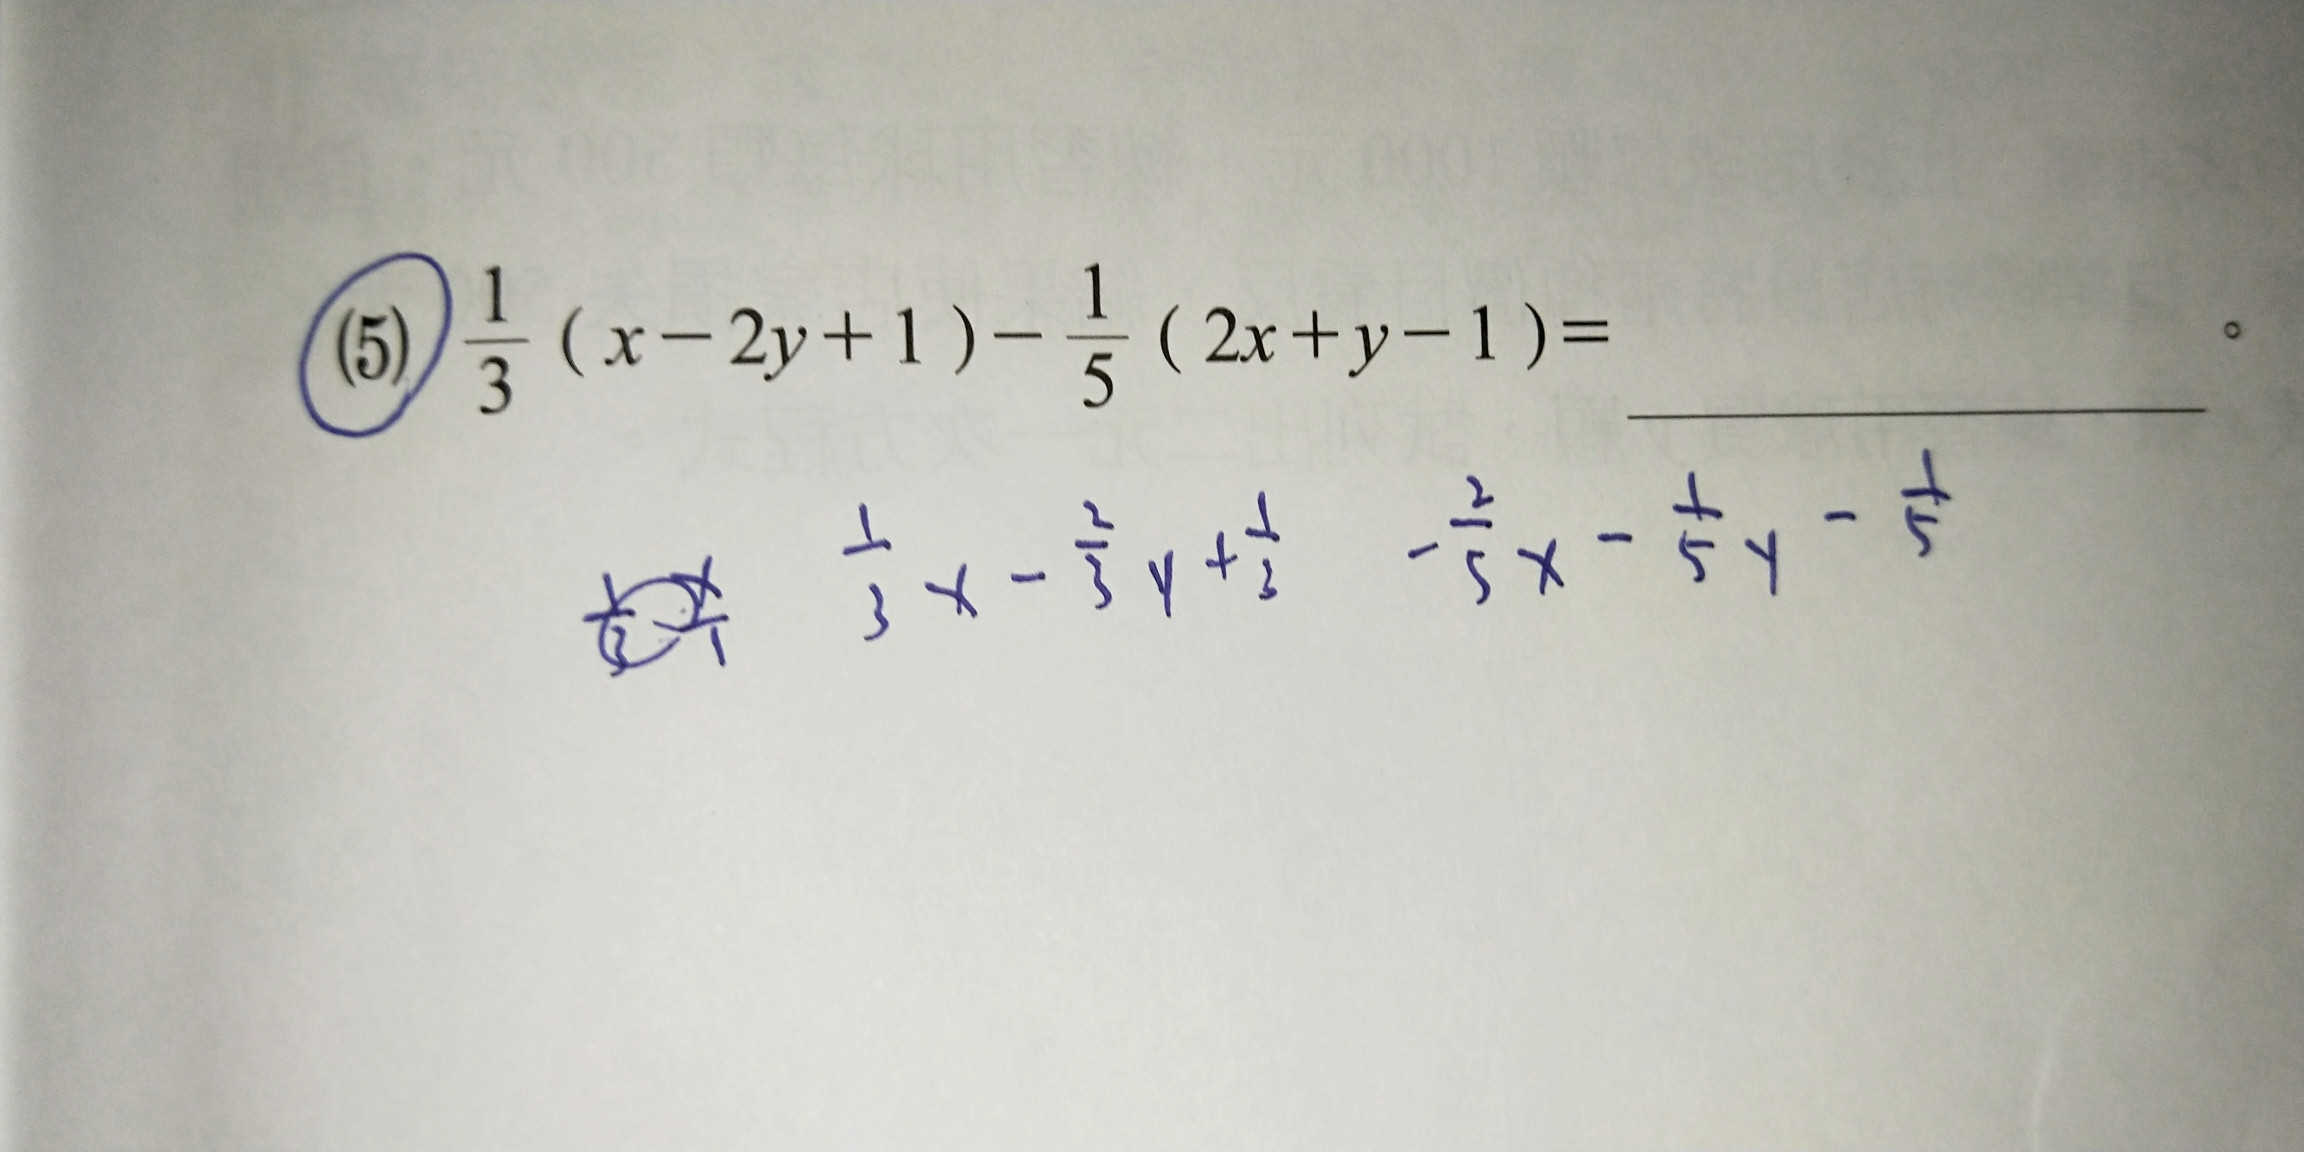 (5) \frac{1}{3} ( x − 2y + 1 ) − \frac{1}{5} ( 2x + y − 1 ) = ______ 。
\frac{1}{3} x − \frac{2}{3} y + \frac{1}{3} − \frac{2}{5} x − \frac{1}{5} y − \frac{1}{5}